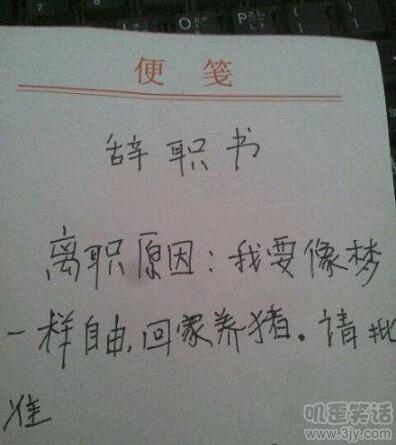 便笺
辞职书
离职原因：我要像梦
一样自由，回家养猪。请批
准
叽歪笑话
www.3jy.com